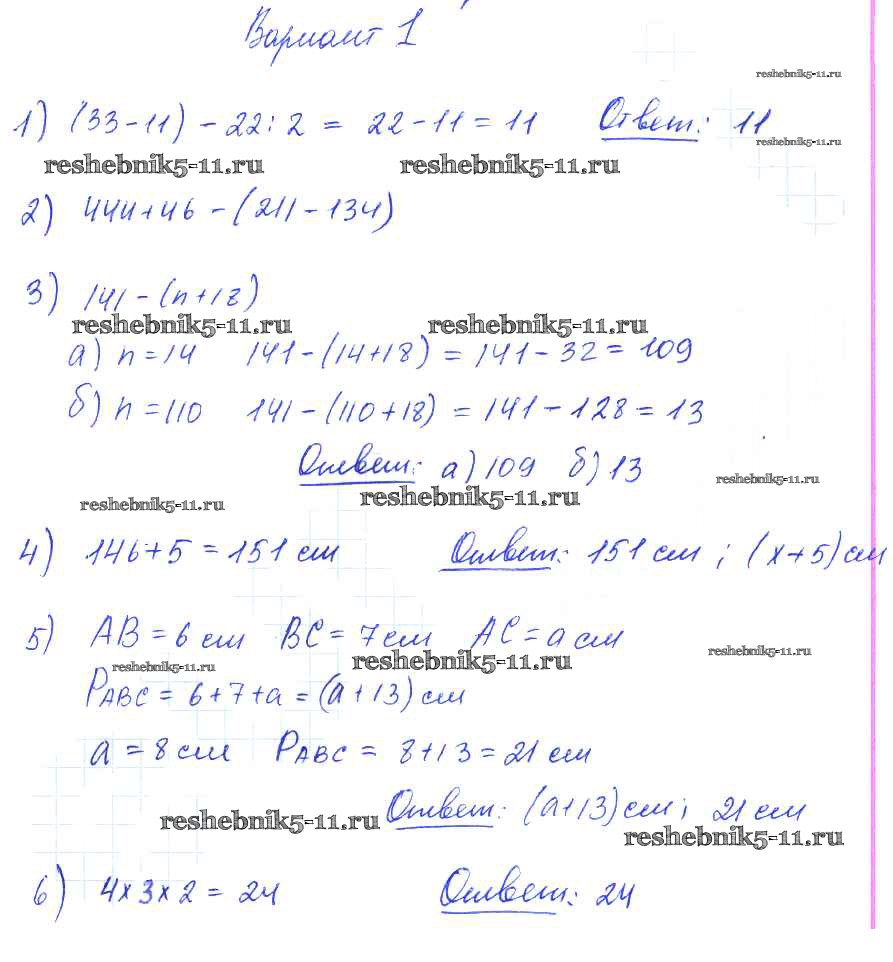 Вариант 1
reshebnik5-11.ru
1) (33-11) - 22:2 = 22-11 = 11 Ответ: 11
reshebnik5-11.ru
reshebnik5-11.ru reshebnik5-11.ru
2) 444+46 - (211 - 134)
3) 141 - (n+18)
reshebnik5-11.ru reshebnik5-11.ru
а) n = 14 141-(14+18) = 141-32 = 109
б) n = 110 141-(110+18) = 141-128 = 13
Ответ: а) 109 б) 13
reshebnik5-11.ru
reshebnik5-11.ru reshebnik5-11.ru
4) 146+5 = 151 см Ответ: 151 см ; (x+5) см
5) AB = 6 см BC = 7 см AC = a см
reshebnik5-11.ru reshebnik5-11.ru reshebnik5-11.ru
PABC = 6+7+a = (a+13) см
a = 8 см PABC = 8+13 = 21 см
Ответ: (a+13) см; 21 см
reshebnik5-11.ru reshebnik5-11.ru
6) 4x3x2 = 24 Ответ: 24